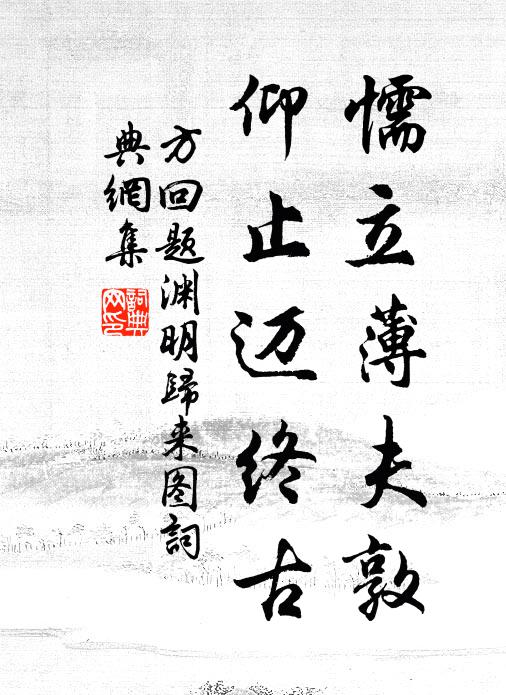 懦立薄夫敦
仰止迈终古
方回题渊明归来图词
典網集
詞典網印